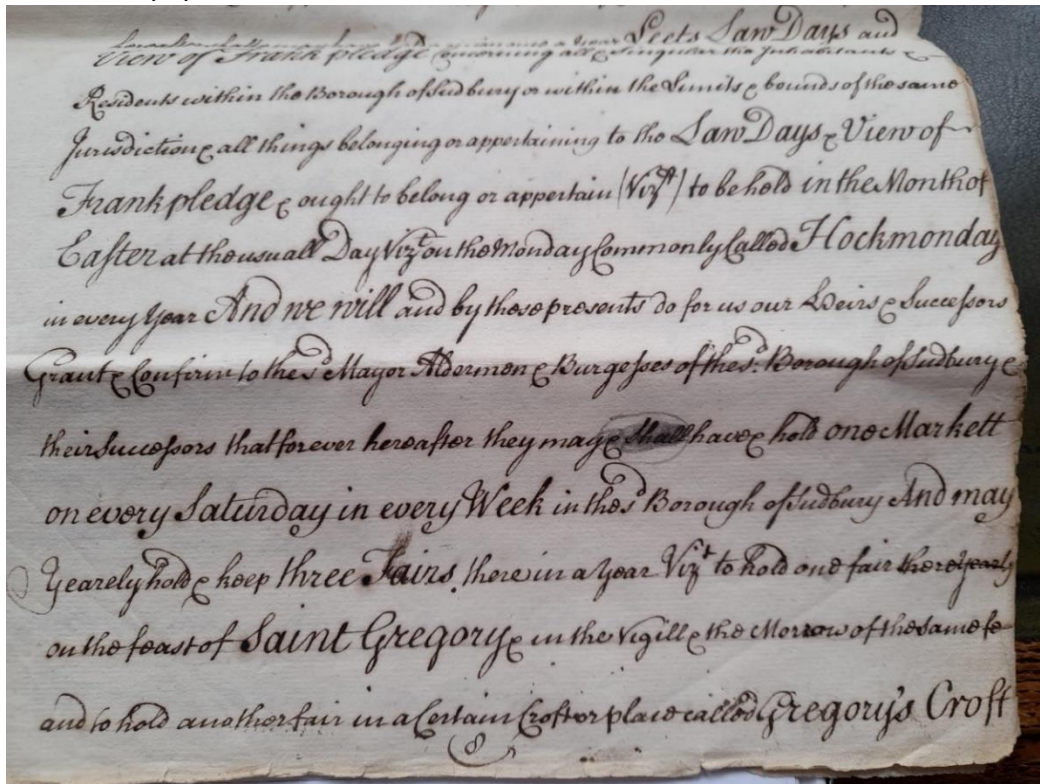 Leets Law Days and
View of Frank pledge concerning all & Singular the Inhabitants &
Residents within the Borough of Sudbury or within the Limits & bounds of the same
Jurisdiction & all things belonging or appertaining to the Law Days & View of
Frank pledge & ought to belong or appertain (Vizt) to be held in the Month of
Easter at the usuall Day Vizt on the Monday Commonly Called Hockmonday
in every Year And we will and by these presents do for us our Heirs & Successors
Grant & Confirm to the sd Mayor Aldermen & Burgesses of the sd. Borough of Sudbury &
their Successors that forever hereafter they may & shall have & hold one Markett
on every Saturday in every Week in the sd Borough of Sudbury And may
Yearely hold & keep three Fairs there in a Year Vizt to hold one fair there yearly
on the feast of Saint Gregory & in the Vigill & the Morrow of the same fe
and to hold another fair in a Certain Croft or place called Gregory's Croft
8